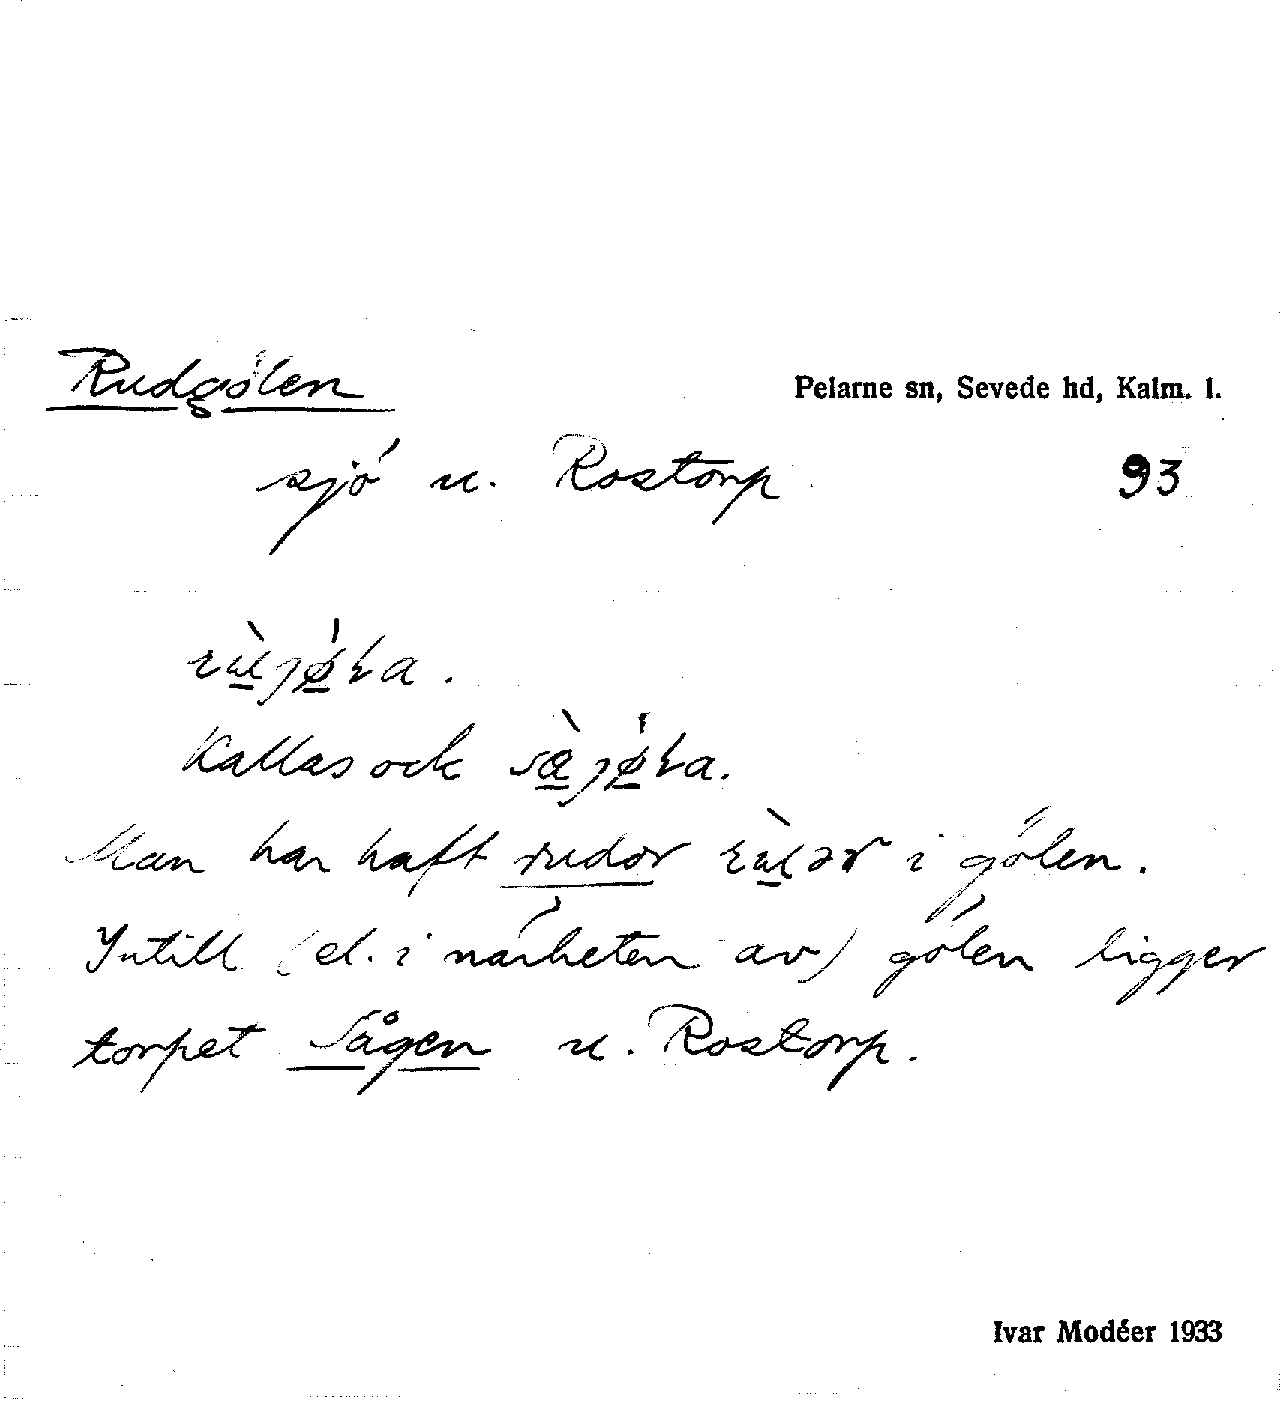 Rudgölen
Pelarne sn, Sevede hd, Kalm. l.
sjö u. Rostorp
93
Kallas ock
Man har haft rudor i gölen.
Intill (el. i närheten av) gölen ligger
torpet Sågen u. Rostorp.
Ivar Modéer 1933